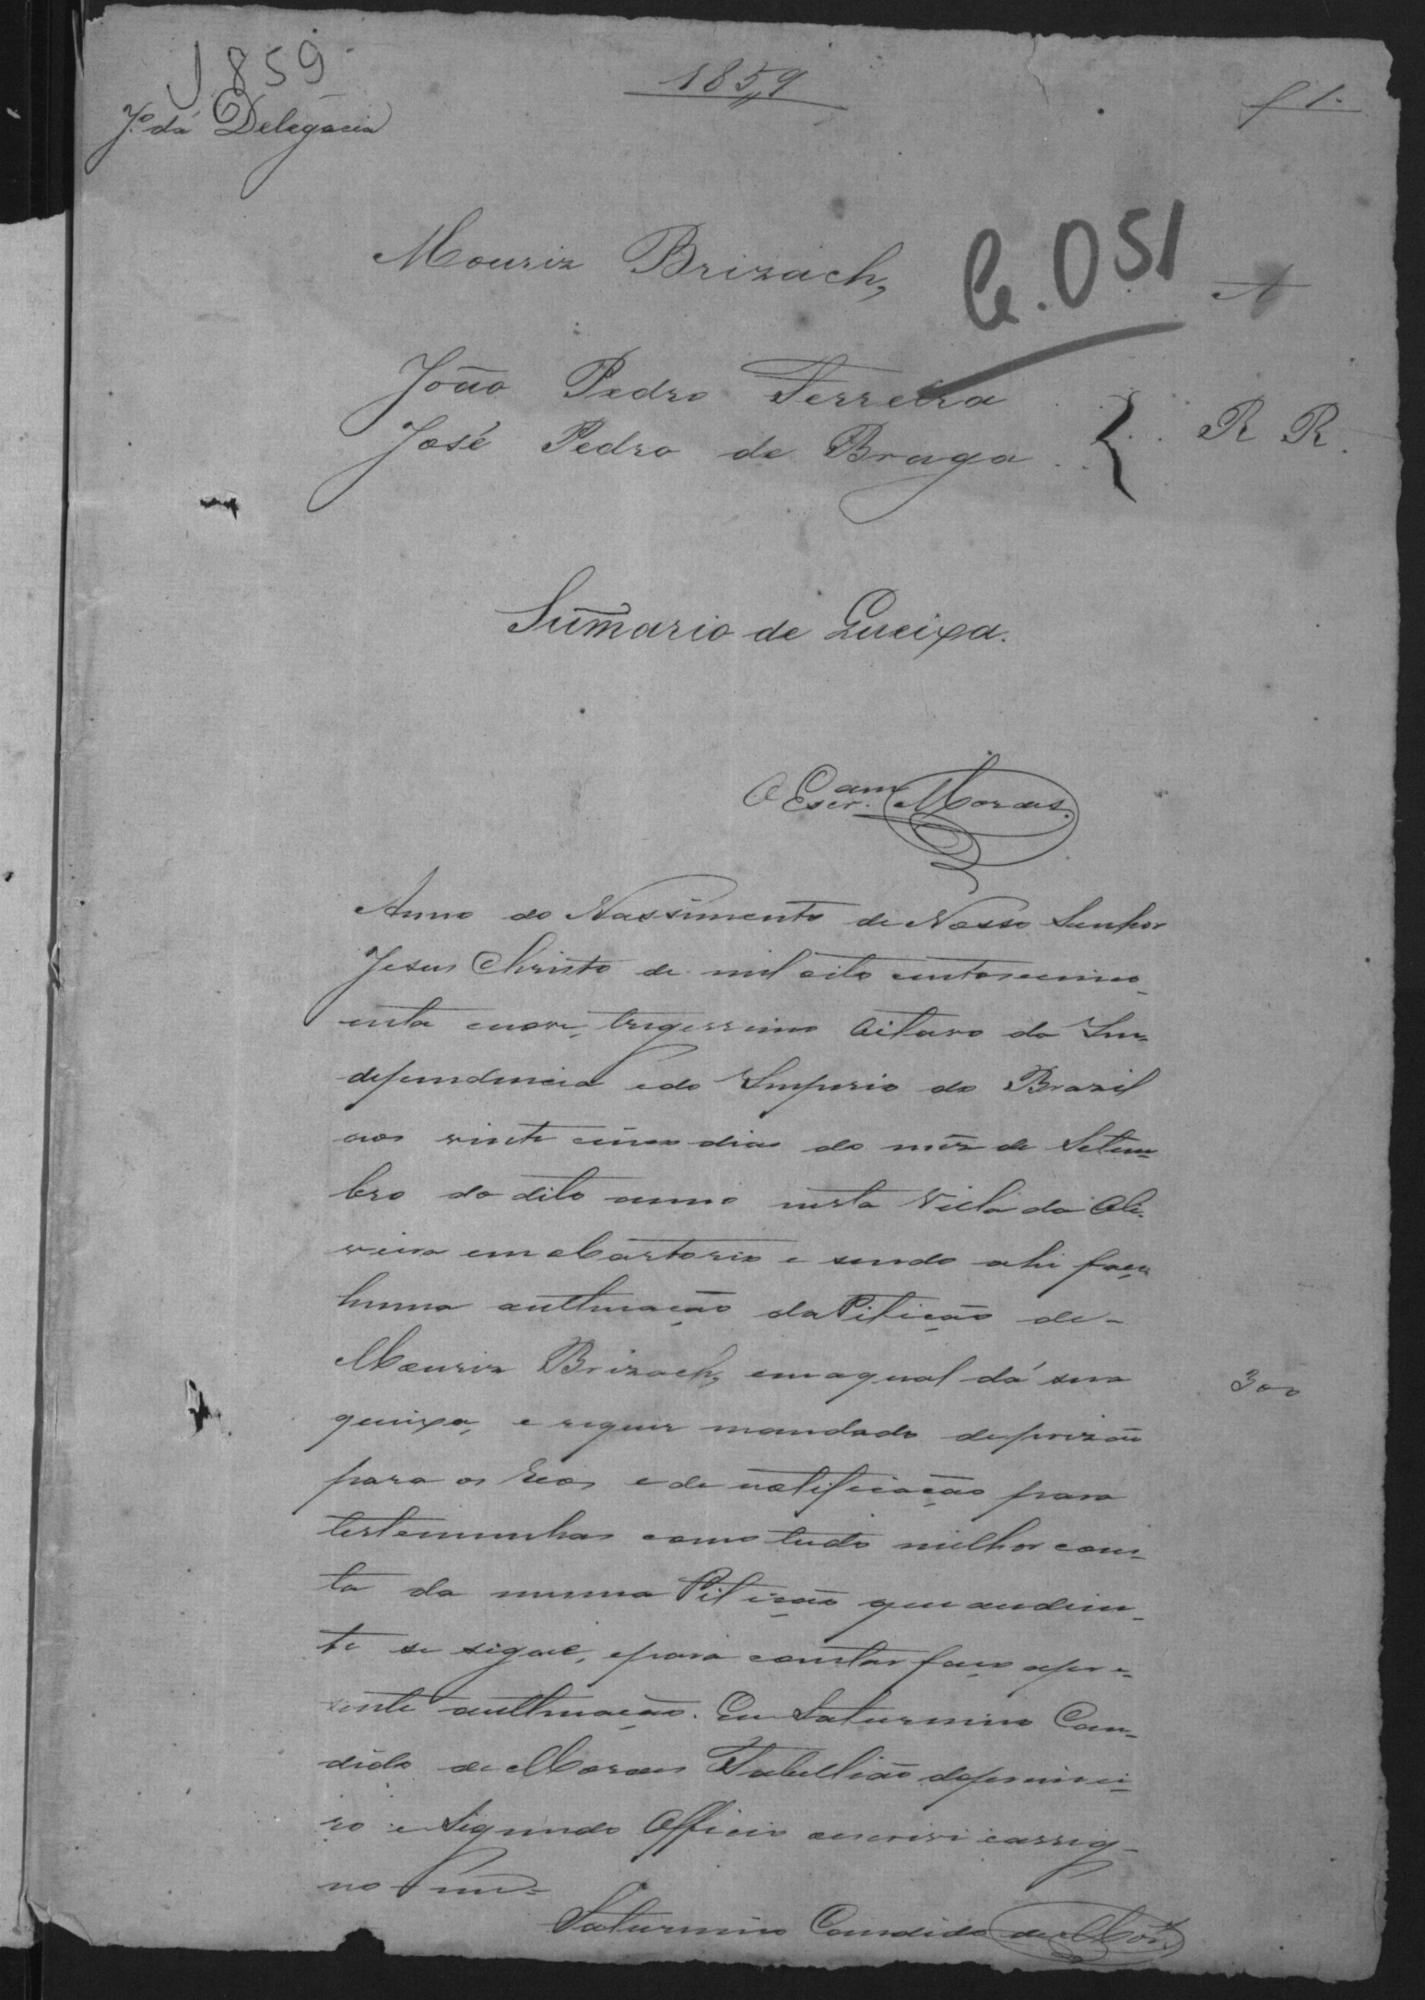 1859
1859
f 1.
Jº. da Delegacia
Mouriz Brizach,
A
Cx. 051
João Pedro Ferreira
José Pedro de Braga
R R
Sum̃ario de Queixa.
O Escr.am Moraes.
Anno do Nassimento de Nosso Senhor
Jesus Christo de mil oito centos e cinco-
enta e nove, trigessimo Oitavo da In-
dependencia e do Imperio do Brazil
aos vinte cinco dias do mez de Setem-
bro do dito anno nesta Villa da Oli-
veira em Cartorio e sendo ahi faço
huma authuação da Pitição de-
Mouriz Brizach, em a qual dá sua
300
queixa, e requer mandado de prizão
para os Reos e de notificação para
testemunhas como tudo milhor cons-
ta da mesma Pitição que audien-
te se sigue, e para constar faço a pre-
zente authuação. Eu Saturnino Can-
dido de Moraes Tabellião do primei-
ro e Segundo Officio escrivi e assig-
no
Saturnino Candido de Mor.